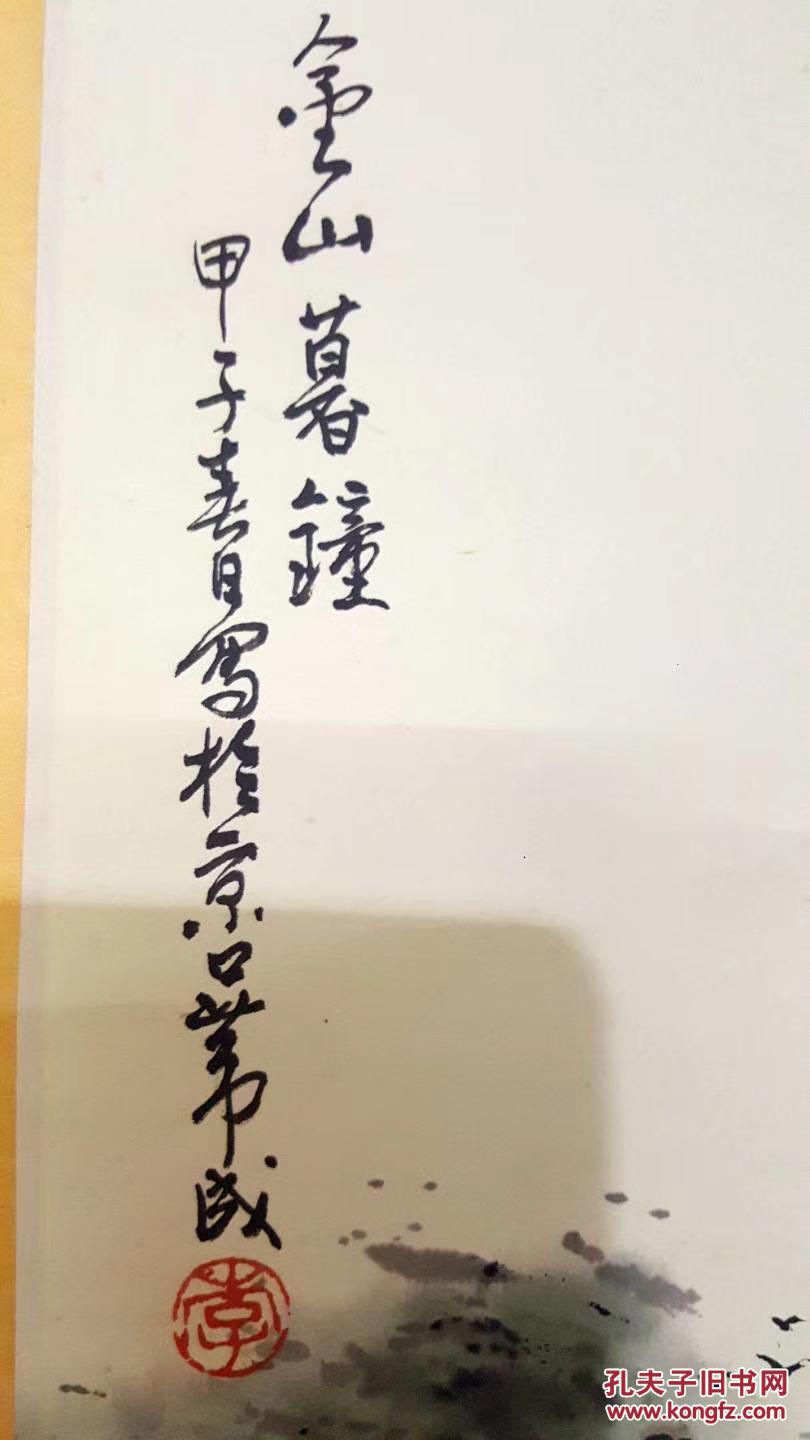 金山暮鐘
甲子春日寫於京口成
李
孔夫子旧书网
www.kongfz.com